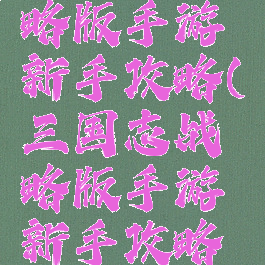 略版手游
新手攻略(
三国志战
略版手游
新手攻略